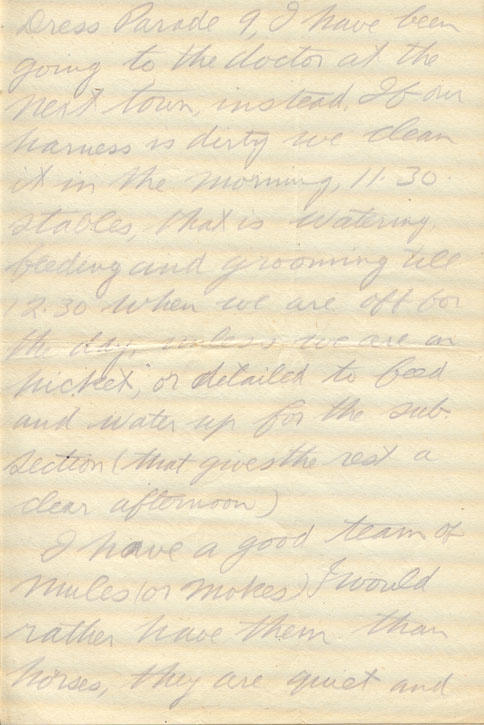 Dress Parade 9, I have been
going to the doctor at the
next town, instead. If our
harness is dirty we clean
it in the morning, 11.30
stables, that is watering,
feeding and grooming till
12.30 when we are off for
the day, unless we are on
picket, or detailed to feed
and water up for the sub-
section (that gives the rest a
clear afternoon)
I have a good team of
mules (or mokes) I would
rather have them than
horses, they are quiet and